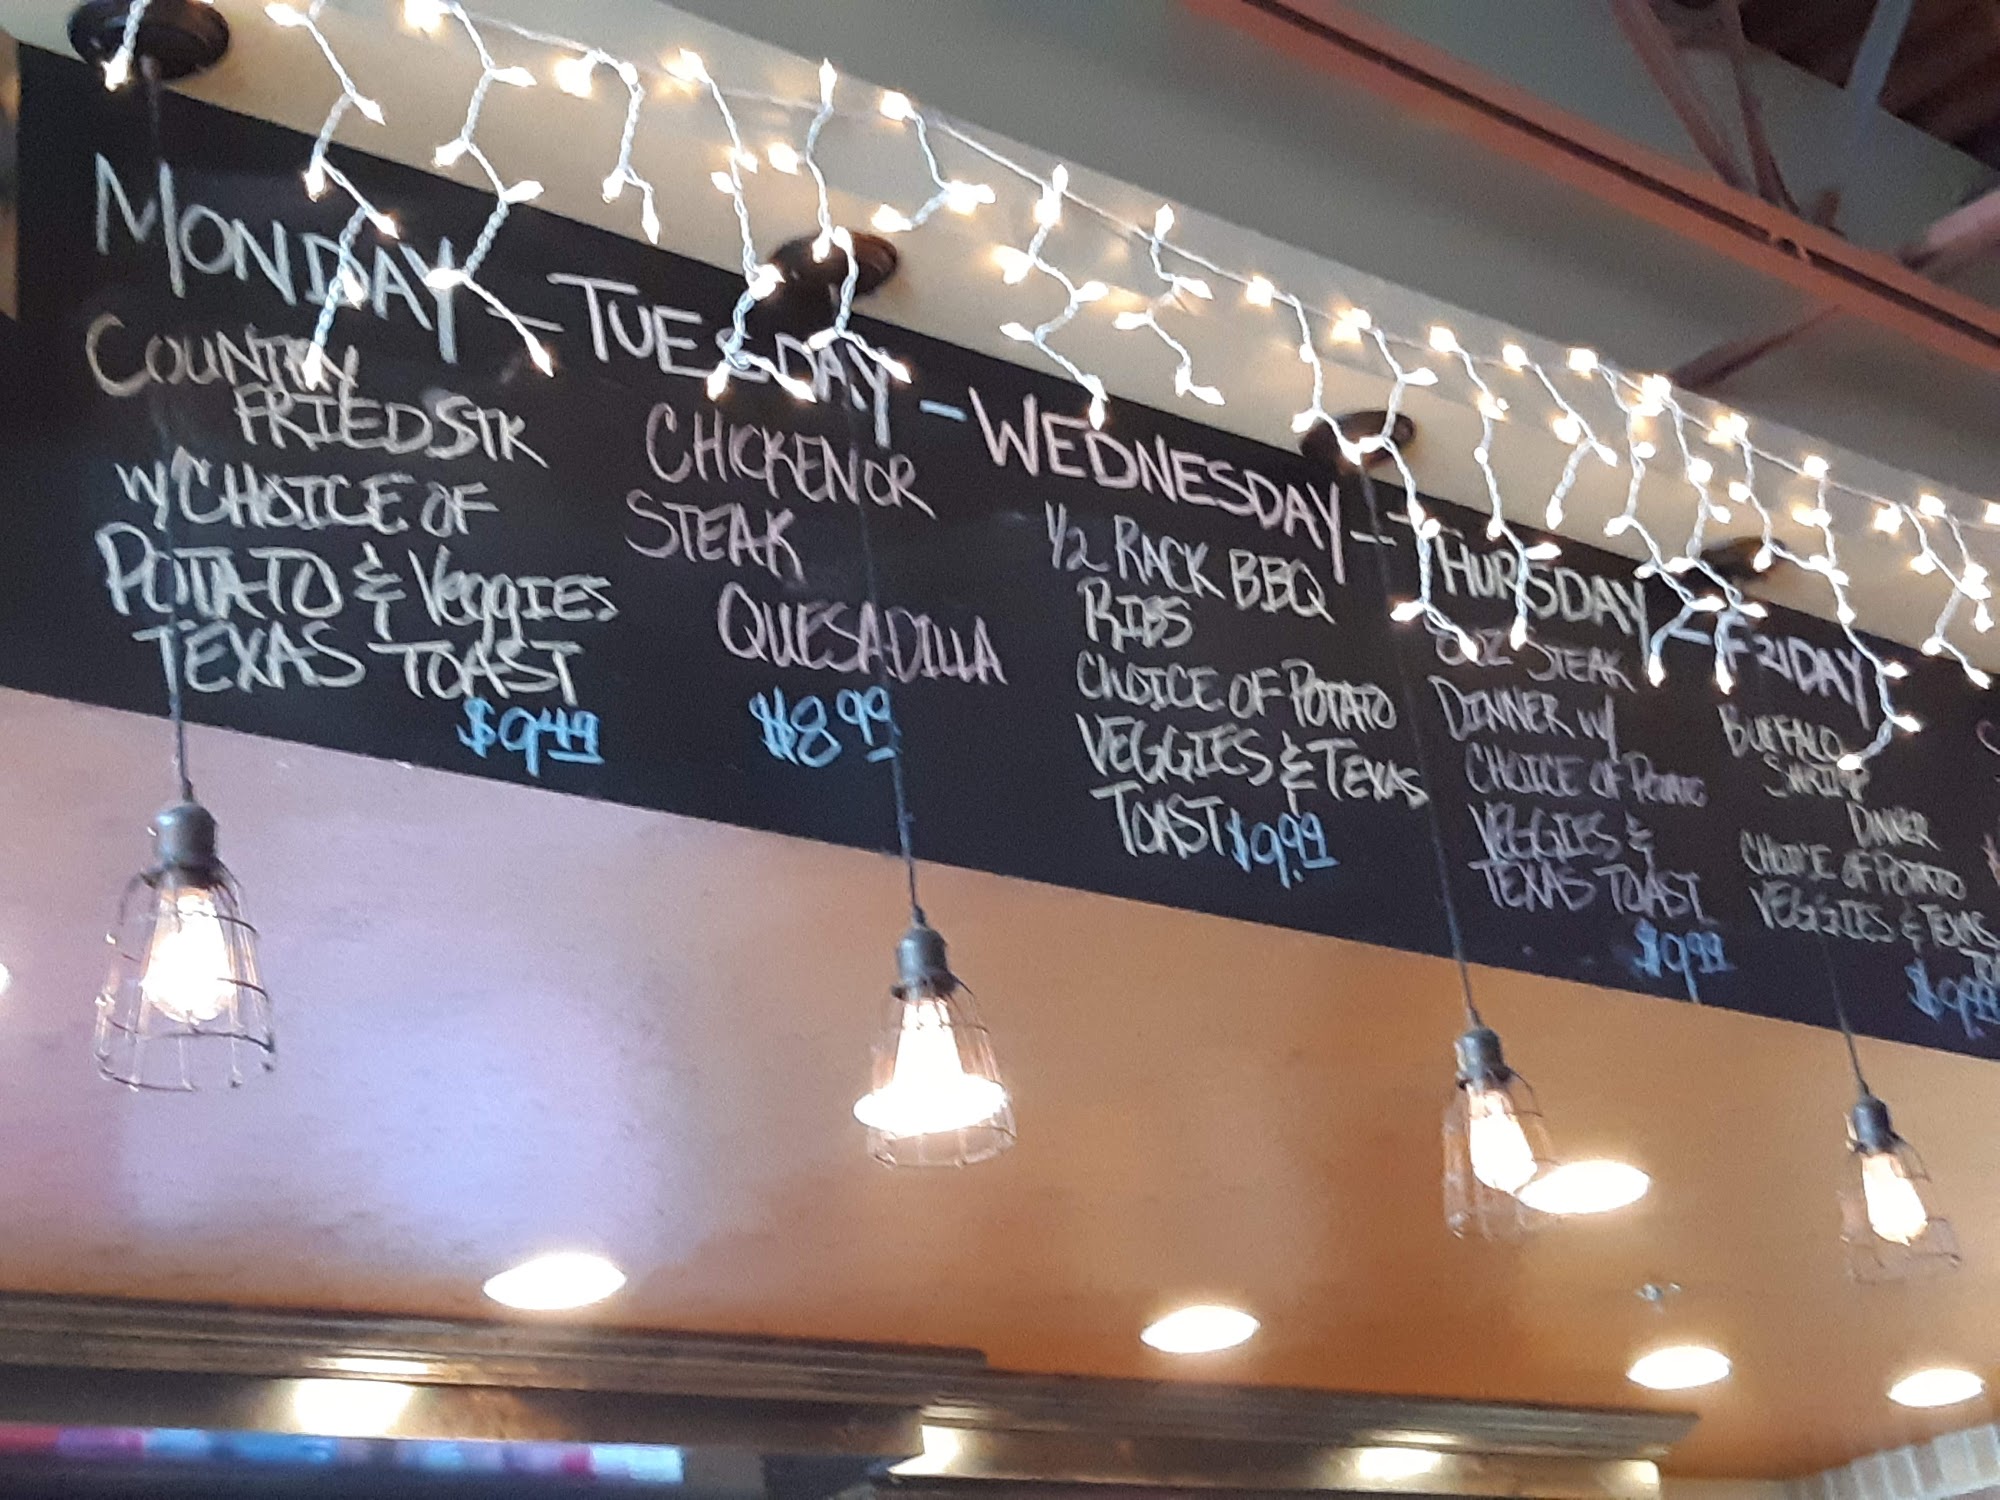 MONDAY –
COUNTRY
FRIED STK
W/ CHOICE OF
POTATO & VEGGIES
TEXAS TOAST
TUESDAY –
CHICKEN OR
STEAK
QUESADILLA
$8.99
WEDNESDAY –
1/2 RACK BBQ
RIBS
CHOICE OF POTATO
VEGGIES & TEXAS
TOAST $9.99
THURSDAY –
8OZ STEAK
DINNER W/
CHOICE OF POTATO
VEGGIES &
TEXAS TOAST
$9.99
FRIDAY
BUFFALO
SHRIMP
DINNER
CHOICE OF POTATO
VEGGIES & TEXAS
$9.99